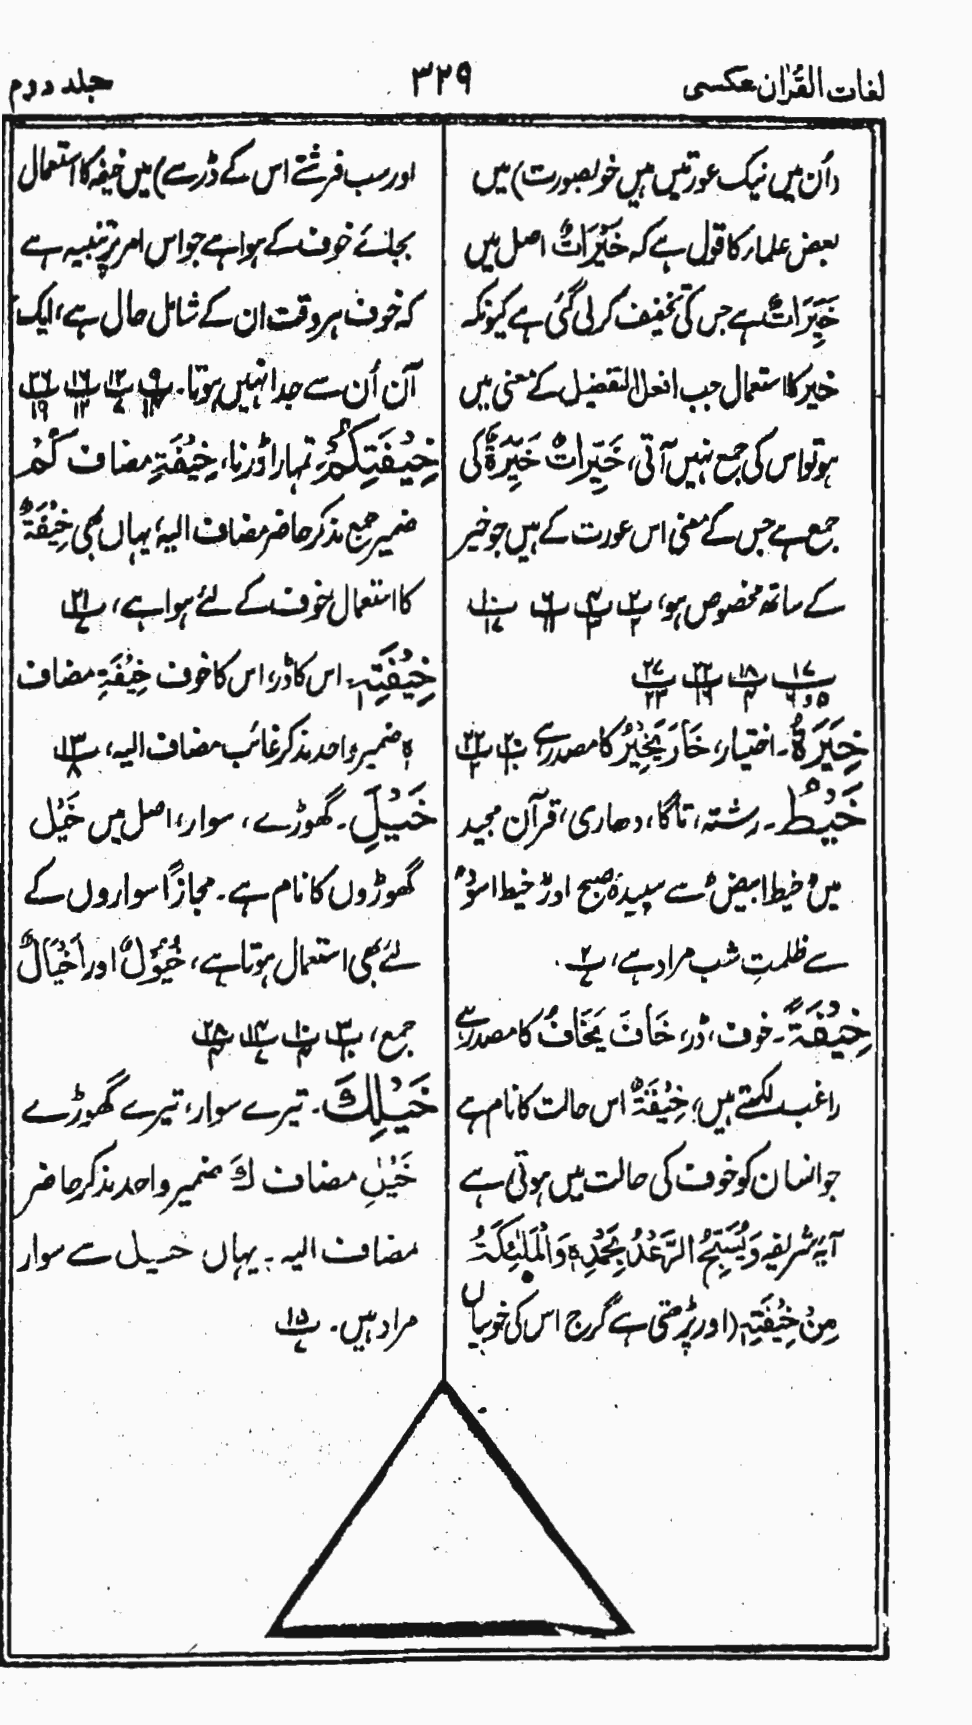 لغات القرآن عکسی
۳۲۹
جلد دوم
(اُن میں نیک عورتیں ہیں خوبصورت) میں
بعض علماء کا قول ہے کہ خَيْرَاتٌ اصل میں
خَيِّرَاتٌ ہے جس کی تخفیف کر لی گئی ہے کیونکہ
خیر کا استعمال جب افعل التفضیل کے معنی میں
ہو تو اس کی جمع نہیں آتی، خَيِّرَاتٌ خَيِّرَةٌ کی
جمع ہے جس کے معنی اس عورت کے ہیں جو خیر
کے ساتھ مخصوص ہو،
خِيَرَةٌ۔ اختیار، خَارَ يَخِيْرُ کا مصدر ہے
خَيْطُ۔ رشتہ، تاگا، دھاری، قرآن مجید
میں خیط ابیض سے سپیدۂ صبح اور خیط اسود
سے ظلمتِ شب مراد ہے،
خِيْفَةً۔ خوف، ڈر، خَافَ يَخَافُ کا مصدر ہے
راغب لکھتے ہیں، خِيْفَةٌ اس حالت کا نام ہے
جو انسان کو خوف کی حالت میں ہوتی ہے
آیۂ شریفہ وَيُسَبِّحُ الرَّعْدُ بِحَمْدِهٖ وَالْمَلٰئِكَةُ
مِنْ خِيْفَتِهٖ (اور پڑھتی ہے گرج اس کی خوبیاں
اور سب فرشتے اس کے ڈر سے) میں خیفہ کا استعمال
بجائے خوف کے ہوا ہے جو اس امر پر تنبیہ ہے
کہ خوف ہر وقت ان کے شامل حال ہے، ایک
آن اُن سے جدا نہیں ہوتا۔
خِيْفَتِكُمْ۔ تمہارا ڈرنا، خِيْفَةِ مضاف كُمْ
ضمیر جمع مذکر حاضر مضاف الیہ، یہاں بھی خِيْفَةٌ
کا استعمال خوف کے لئے ہوا ہے،
خِيْفَتِهٖ۔ اس کا ڈر، اس کا خوف خِيْفَةِ مضاف
ہٖ ضمیر واحد مذکر غائب مضاف الیہ،
خَيْلَ۔ گھوڑے، سوار، اصل میں خَيْل
گھوڑوں کا نام ہے۔ مجازًا سواروں کے
لئے بھی استعمال ہوتا ہے، خُيُوْلٌ اور اَخْيَالٌ
جمع،
خَيْلِكَ۔ تیرے سوار، تیرے گھوڑے
خَيْلِ مضاف كَ ضمیر واحد مذکر حاضر
مضاف الیہ۔ یہاں خیل سے سوار
مراد ہیں۔